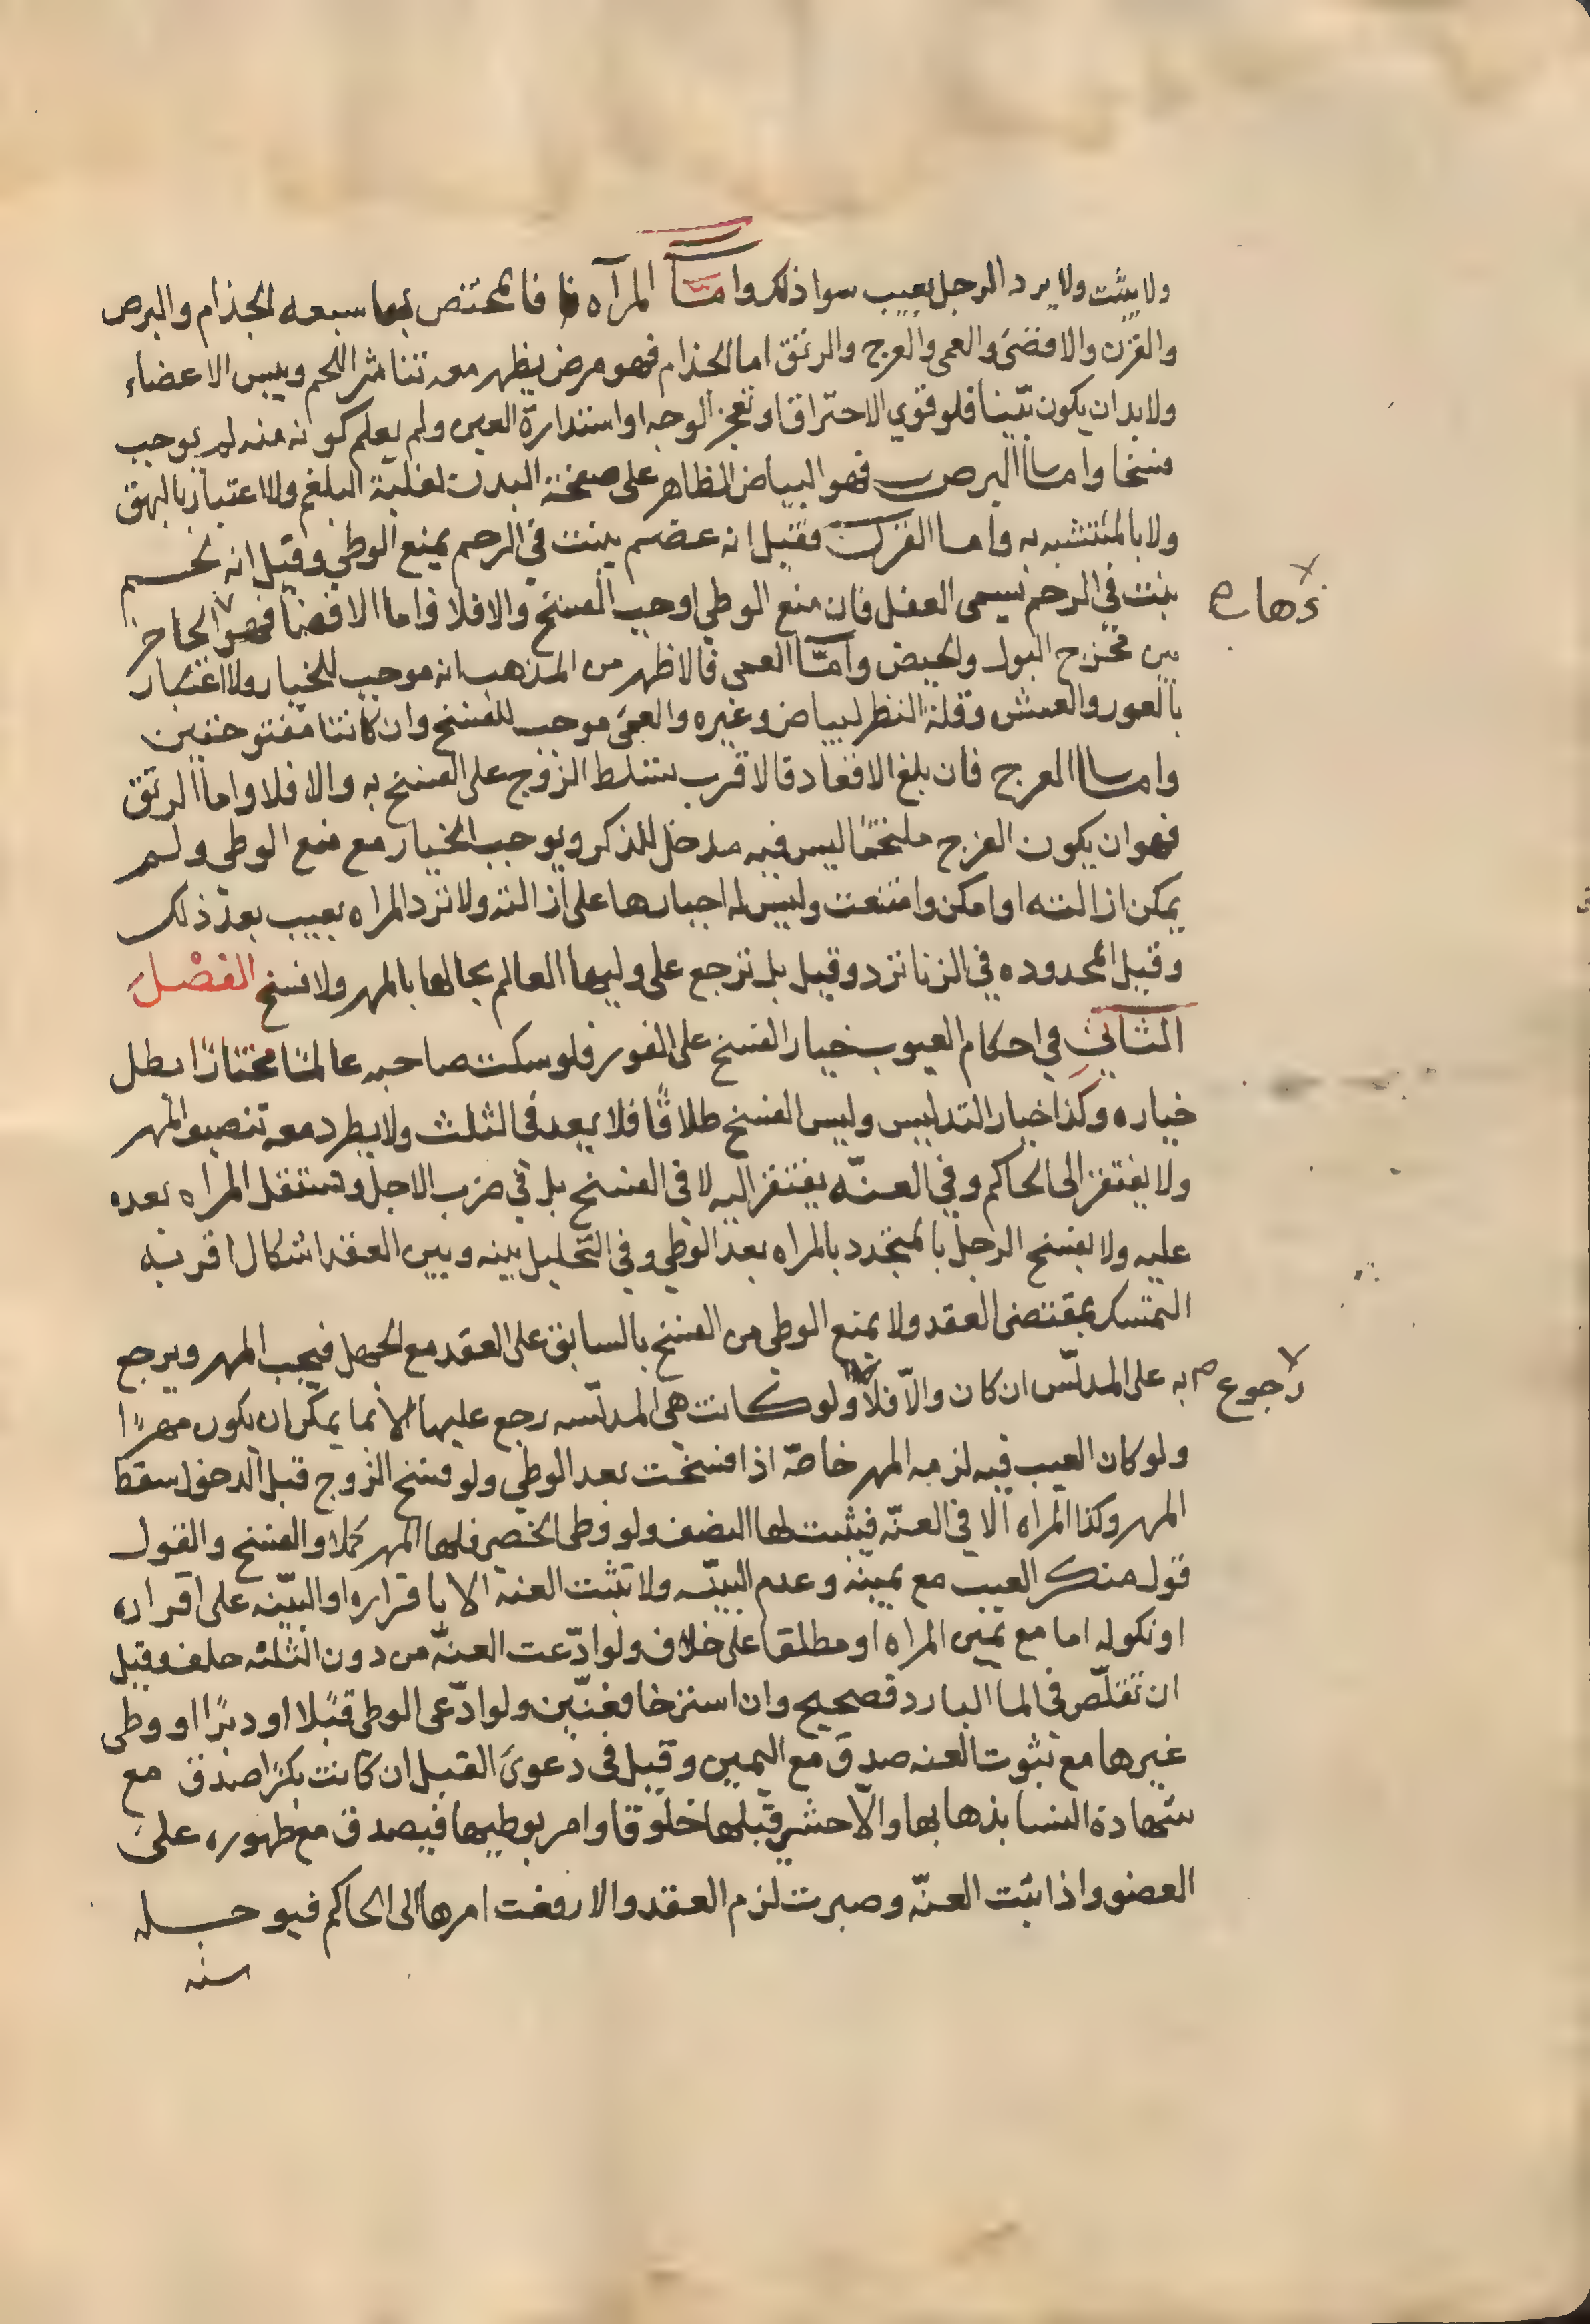 ولا يثبت ولا يرد الرجل بعيب سوا ذلك واما المرآه فالمختص بها سبعه الجذام والبرص
والقرن والافضى والعمى والعرج والرتق اما الجذام فهو مرض يظهر معه تناثر اللحم ويبس الاعضاء
ولابد ان يكون بيّنا فلو قوي الاحتراق او تعجر الوجه او استدارة العين ولم يعلم كونه منه لم يوجب
فسخا واما البرص فهو البياض الظاهر على صفحة البدن لغلبة البلغم ولا اعتبار بالبهق
ولا بالمشتبه به واما القرن فقيل انه عضم ينبت في الرحم يمنع الوطي وقيل انه لحم
ينبت في الرحم يسمى العفل فان منع الوطي اوجب الفسخ والا فلا واما الافضا فهو الحاجز
ذهاب
بين مخرج البول والحيض وامّا العمى فالاظهر من المذهب انه موجب للخيار ولا اعتبار
بالعور والعمش وقلة النظر لبياض وغيره والعمى موجب للفسخ وان كانتا مفتوحتين
واما العرج فان بلغ الاقعاد فالاقرب تسلط الزوج على الفسخ به والا فلا واما الرتق
فهو ان يكون الفرج ملتحمًا ليس فيه مدخل للذكر ويوجب الخيار مع منع الوطي ولم
يمكن ازالته او امكن وامتنعت وليس له اجبارها على ازالته ولا ترد المراه بعيب بعد ذلك
وقيل المحدوده في الزنا ترد وقيل بل ترجع على وليها العالم بحالها بالمهر ولا فسخ الفصل
الثاني في احكام العيوب خيار الفسخ على الفور فلو سكت صاحبه عالمًا مختارًا بطل
خياره وكذا خيار التدليس وليس الفسخ طلاقًا فلا يعد في الثلث ولا يطرد معه تنصيف المهر
ولا يفتقر الى الحاكم وفي العنّه يفتقر اليه لا في الفسخ بل في ضرب الاجل وتستقل المراه بعده
عليه ولا يفسخ الرجل بالمتجدد بالمراه بعد الوطي وفي التخليل بينه وبين العقد اشكال اقربه
التمسك بمقتضى العقد ولا يمنع الوطي من الفسخ بالسابق على العقد مع الجهل فيجب المهر ويرجع
به على المدلّس ان كان والّا فلا ولو كانت هي المدلّسه رجع عليها الا بما يمكن ان يكون مهرًا
رجوع
ولو كان العيب فيه لزمه المهر خاصّه اذا فسخت بعد الوطي ولو فسخ الزوج قبل الدخول سقط
المهر وكذا المراه الا في العنّه فيثبت لها النصف ولو وطى الخصي فلها المهر كملا والفسخ والقول
قول منكر العيب مع يمينه وعدم البينّه ولا تثبت العنة الا باقراره او البيّنه على اقراره
او نكوله اما مع يمين المراه او مطلقا على خلاف ولو ادّعت العنّه من دون الثلثه حلف وقيل
ان تقلّص في الما البارد فصحيح وان استرخا فعنّين ولو ادّعى الوطي قبلًا او دبرًا او وطي
غيرها مع ثبوت العنه صدق مع اليمين وقيل في دعوى القبل ان كانت بكرًا صدق مع
شهادة النسا بذهابها والّا حشي قبلها خلوقا وامر بوطيها فيصدق مع ظهوره على
العضو واذا ثبت العنّه وصبرت لزم العقد والا رفعت امرها الى الحاكم فيوجله
سنه